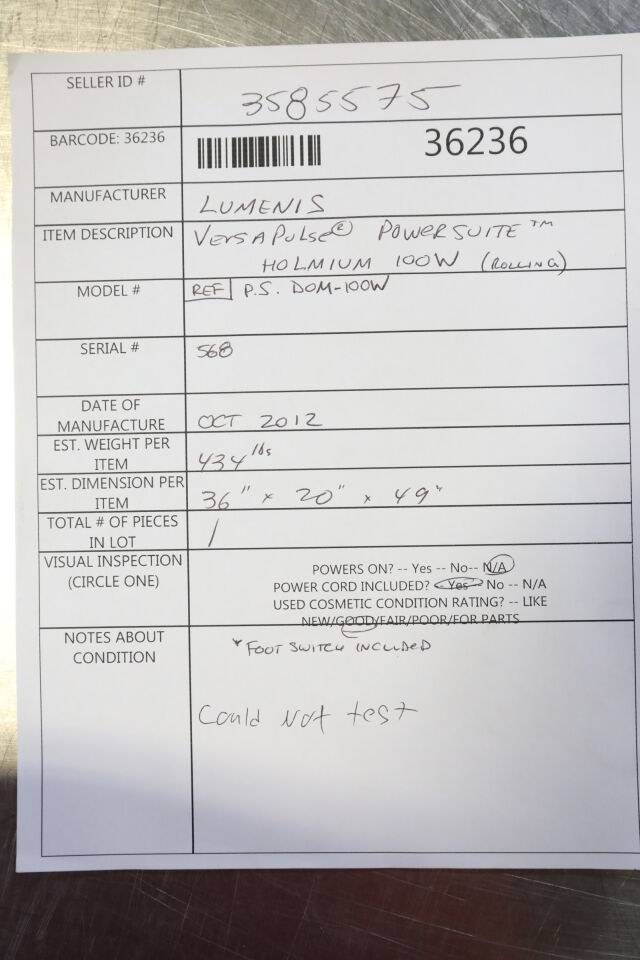 SELLER ID #
3585575
BARCODE: 36236
36236
MANUFACTURER
LUMENIS
ITEM DESCRIPTION
VersaPulse® POWERSUITE™
HOLMIUM 100W (ROLLING)
MODEL #
REF P.S. DOM-100W
SERIAL #
568
DATE OF
MANUFACTURE
OCT 2012
EST. WEIGHT PER
ITEM
434 lbs
EST. DIMENSION PER
ITEM
36" x 20" x 49"
TOTAL # OF PIECES
IN LOT
1
VISUAL INSPECTION
(CIRCLE ONE)
POWERS ON? -- Yes -- No-- N/A
POWER CORD INCLUDED? -- Yes-- No -- N/A
USED COSMETIC CONDITION RATING? -- LIKE
NEW/GOOD/FAIR/POOR/FOR PARTS
NOTES ABOUT
CONDITION
* FOOT SWITCH INCLUDED
Could Not test